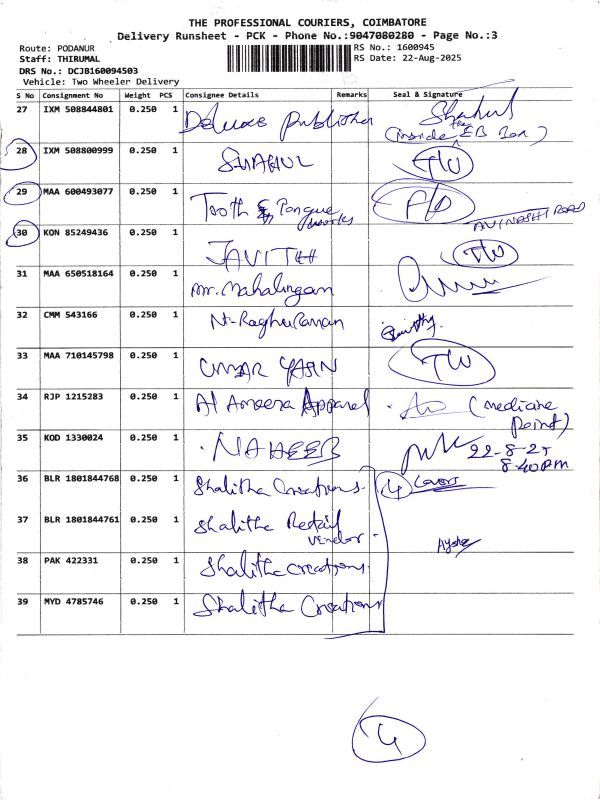 THE PROFESSIONAL COURIERS, COIMBATORE
Delivery Runsheet - PCK - Phone No.:9047080280 - Page No.:3
Route: PODANUR RS No.: 1600945
Staff: THIRUMAL RS Date: 22-Aug-2025
DRS No.: DCJB160094503
Vehicle: Two Wheeler Delivery
S No Consignment No Weight PCS Consignee Details Remarks Seal & Signature
27 IXM 508844801 0.250 1 Deluxe Publisher Shahul
(inside the EB Box)
28 IXM 508800999 0.250 1 SHAHUL
29 MAA 600493077 0.250 1 Tooth & Tongue
works AVINASHI ROAD
30 KON 85249436 0.250 1 JAVITH
31 MAA 650518164 0.250 1 Mr. Mahalingam
32 CMM 543166 0.250 1 N. Raghuraman
33 MAA 710145798 0.250 1 UMAR YASIN
34 RJP 1215283 0.250 1 Al Ameera Apparel (medicine
Point)
35 KOD 1330024 0.250 1 NAHEEB 22-8-25
8.40PM
36 BLR 1801844768 0.250 1 Shalitha Creations. 4 Covers
37 BLR 1801844761 0.250 1 Shalitha Retail
Vendor. Aysha
38 PAK 422331 0.250 1 Shalitha creations.
39 MYD 4785746 0.250 1 Shalitha Creations
4